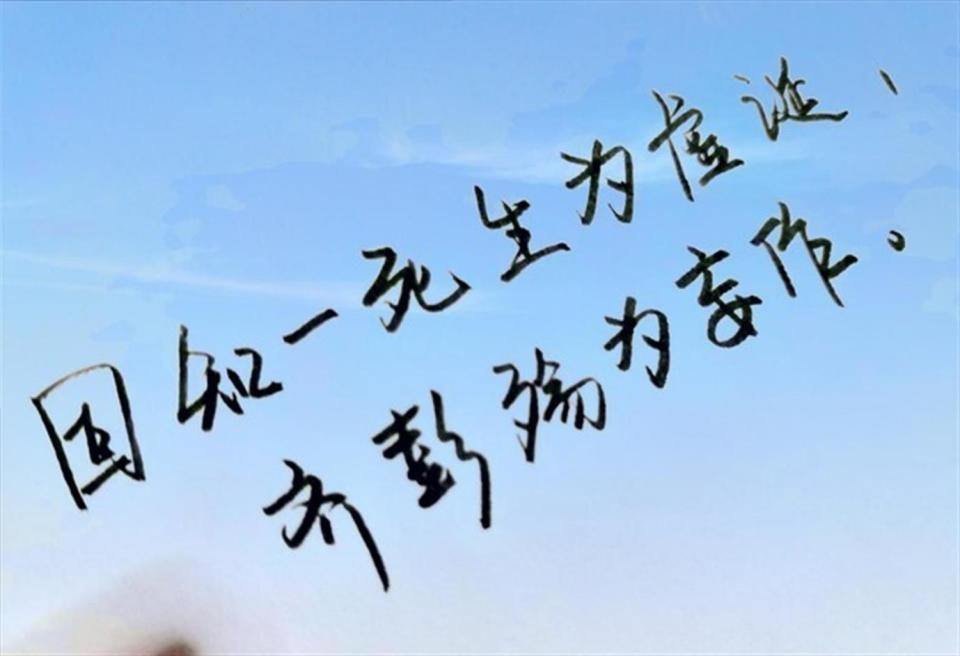 固知一死生为虚诞、
齐彭殇为妄作。